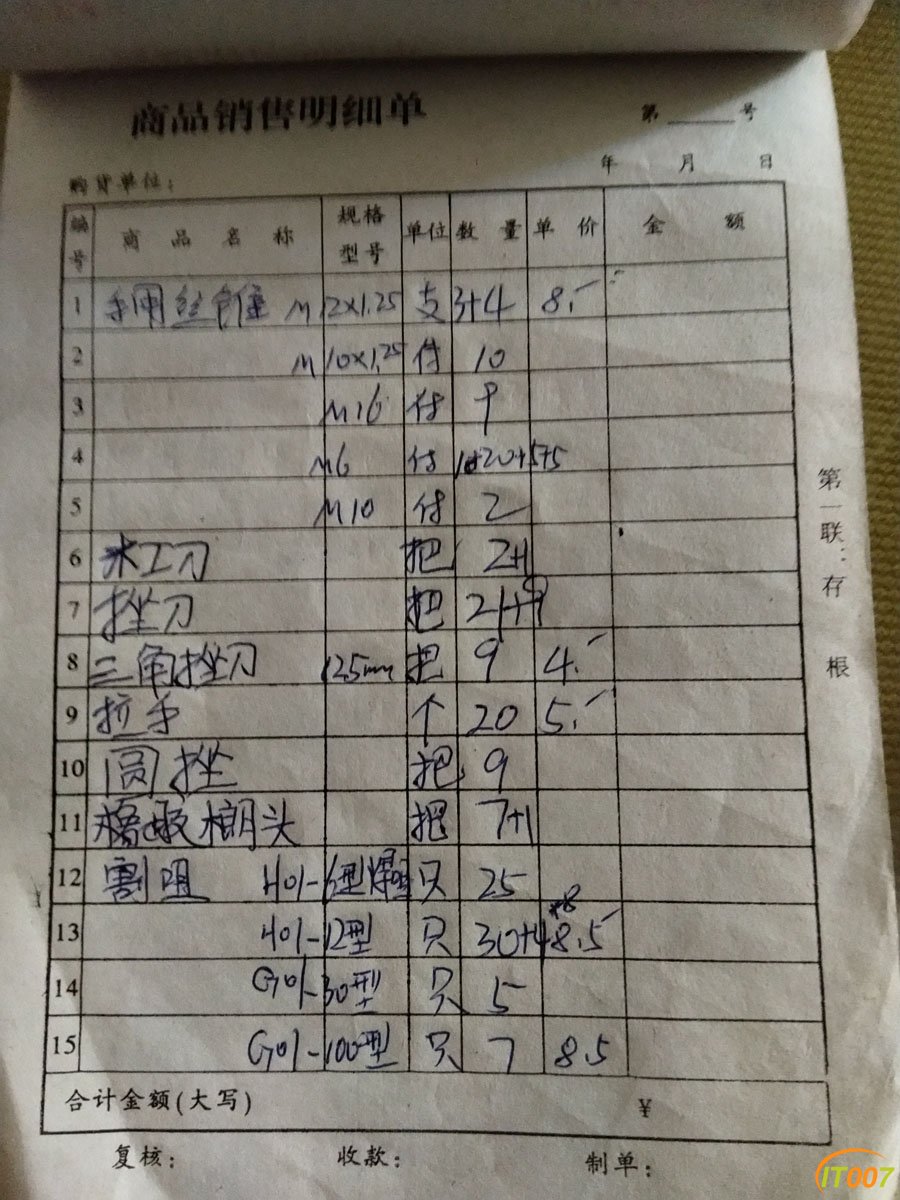 商品销售明细单
第 号
年 月 日
购货单位：
编号 商品名称 规格型号 单位 数量 单价 金额
1 手用丝锥 M12×1.25 支 3+4 8.-
2 M10×1.25 付 10
3 M16 付 9
4 M6 付 20+5+5
5 M10 付 2
6 木工刀 把 2+1
7 挫刀 把 21+9
8 三角挫刀 125mm 把 9 4.-
9 拉手 个 20 5.-
10 圆挫 把 9
11 榔头 把 7+1
12 割咀 H01-6型 只 25
13 H01-12型 只 30+4 8.5
14 G01-30型 只 5
15 G01-100型 只 7 8.5
合计金额(大写) ¥
复核： 收款： 制单：
第一联：存根
IT007